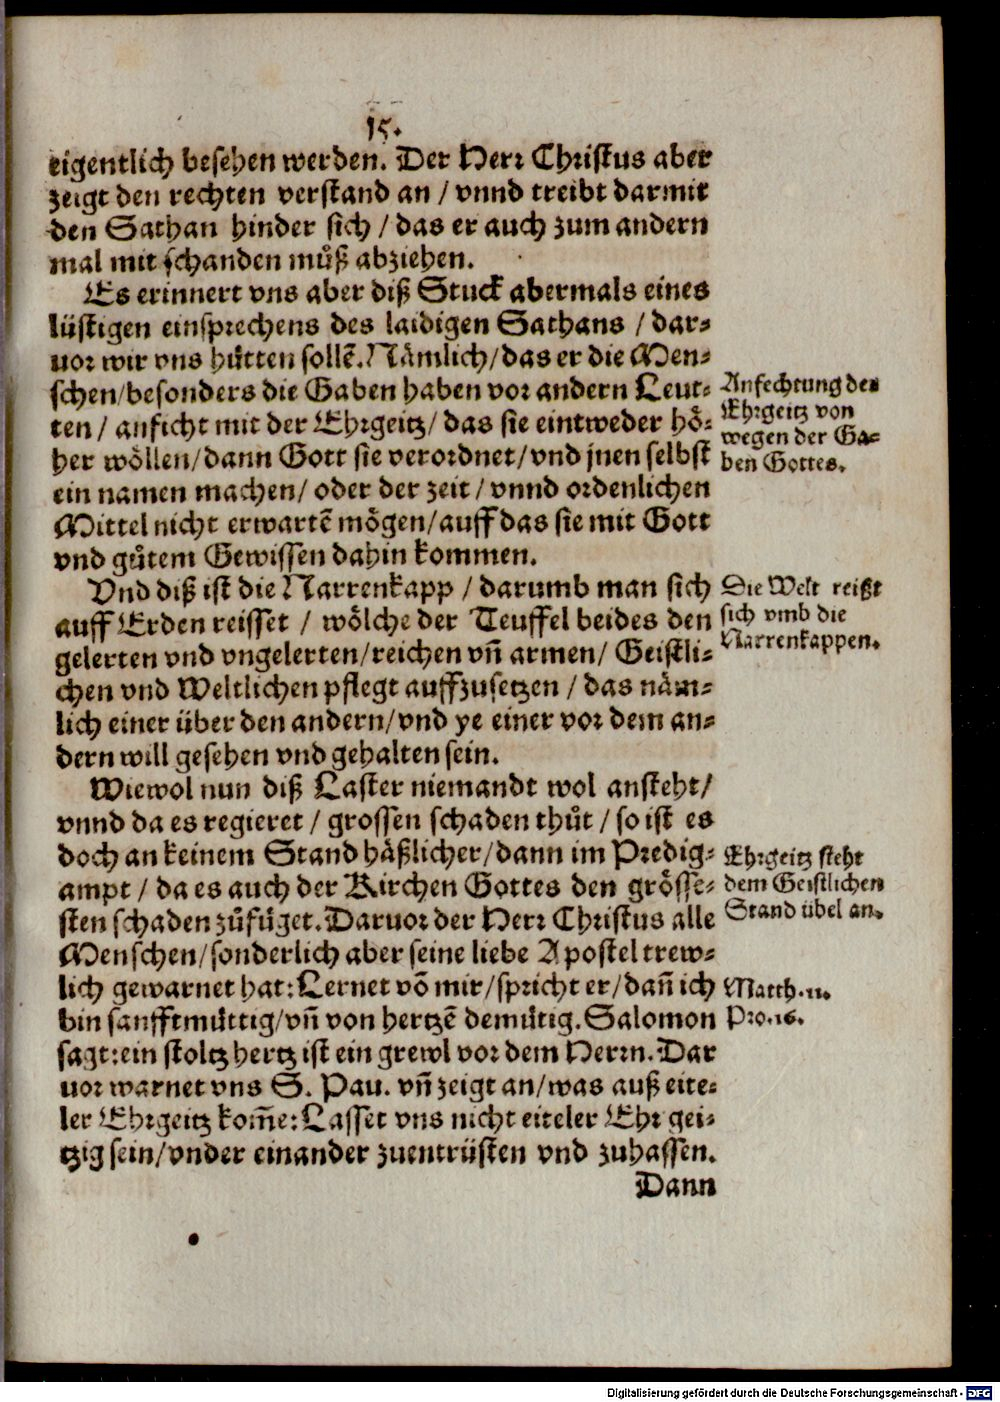 15.
eigentlich besehen werden. Der Herr Christus aber
zeigt den rechten verstand an / vnnd treibt darmit
den Sathan hinder sich / das er auch zum andern
mal mit schanden muͦß abziehen.
Es erinnert vns aber diß Stuck abermals eines
lüstigen einsprechens des laidigen Sathans / dar-
uor wir vns hütten sollē. Nämlich / das er die Men-
schen / besonders die Gaben haben vor andern Leut-
ten / anficht mit der Ehrgeitz / das sie eintweder hö-
her wöllen / dann Gott sie verordnet / vnd jnen selbst
ein namen machen / oder der zeit / vnnd ordenlichen
Mittel nicht erwartē mögen / auff das sie mit Gott
vnd guͦtem Gewissen dahin kommen.
Anfechtung des
Ehrgeitz von
wegen der Ga-
ben Gottes.
Vnd diß ist die Narrenkapp / darumb man sich
auff Erden reisset / wölche der Teuffel beides den
gelerten vnd vngelerten / reichen vn̄ armen / Geistli-
chen vnd Weltlichen pflegt auffzusetzen / das näm-
lich einer über den andern / vnd ye einer vor dem an-
dern will gesehen vnd gehalten sein.
Die Welt reißt
sich vmb die
Narrenkappen.
Wiewol nun diß Laster niemandt wol ansteht /
vnnd da es regieret / grossen schaden thuͦt / so ist es
doch an keinem Stand häßlicher / dann im Predig-
ampt / da es auch der Kirchen Gottes den grösse-
sten schaden zuͦfüget. Daruor der Herr Christus alle
Menschen / sonderlich aber seine liebe Apostel trew-
lich gewarnet hat: Lernet vō mir / spricht er / dan̄ ich
bin sanfftmüttig / vn̄ von hertzē demütig. Salomon
sagt: ein stoltz hertz ist ein grewl vor dem Herrn. Dar
uor warnet vns S. Pau. vn̄ zeigt an / was auß eite-
ler Ehrgeitz kom̄e: Lasset vns nicht eiteler Ehr gei-
tzig sein / vnder einander zuentrüsten vnd zuhassen.
Ehrgeitz steht
dem Geistlichen
Stand übel an.
Matth. 11.
Prou. 16.
Dann
Digitalisierung gefördert durch die Deutsche Forschungsgemeinschaft - DFG